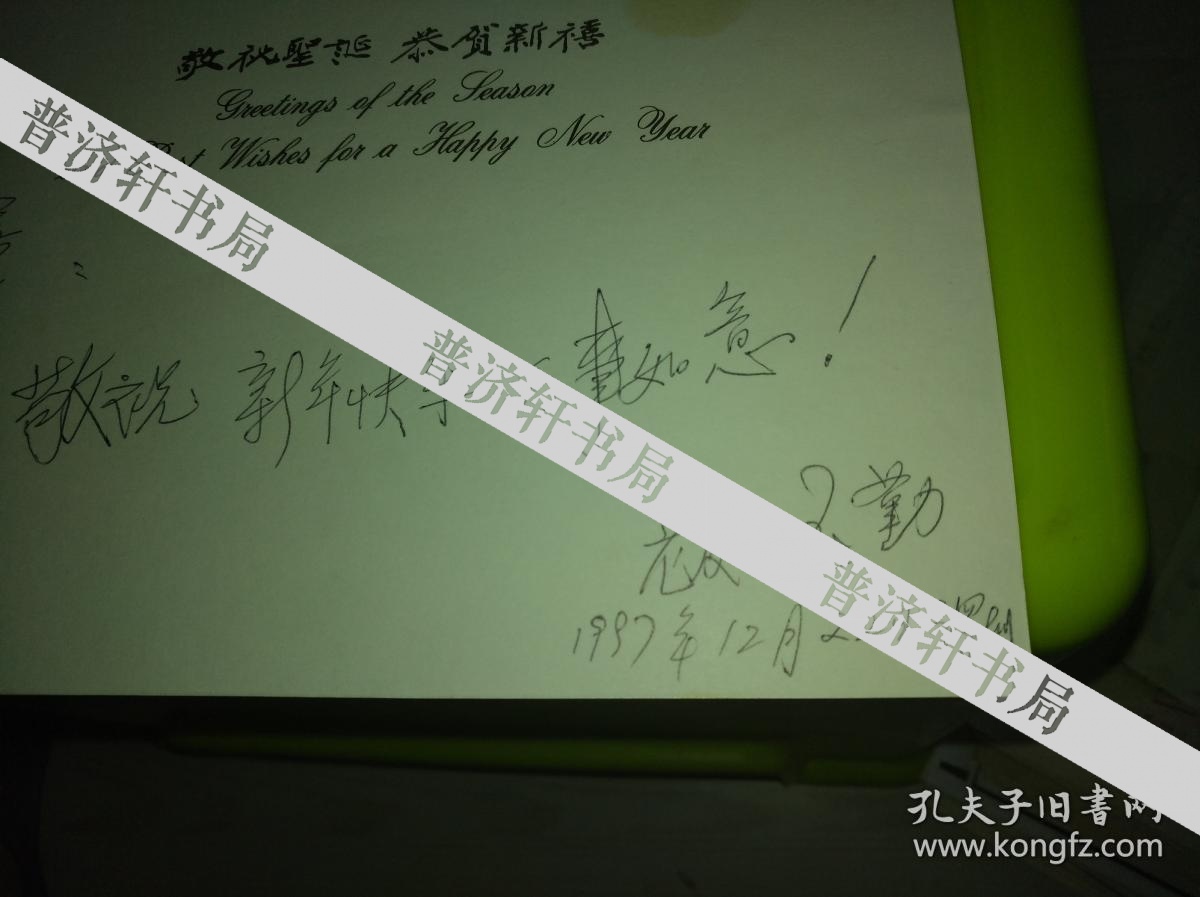 敬祝聖誕 恭贺新禧
Greetings of the Season
Wishes for a Happy New Year
普济轩书局
敬祝 新年快 事如意！
普济轩书局
勤
1997年12月
普济轩书局
孔夫子旧書网
www.kongfz.com